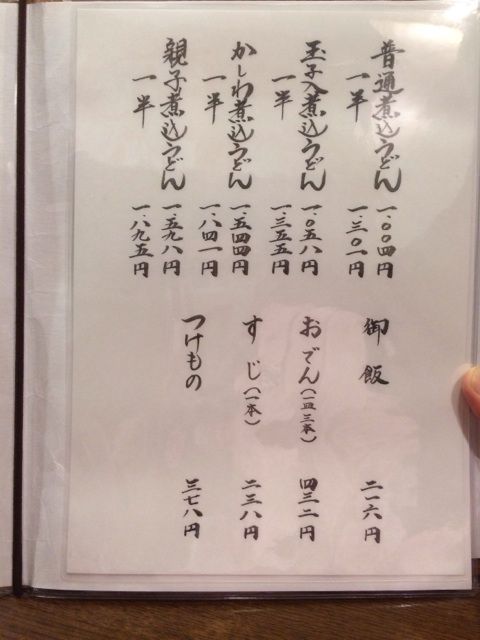 普通煮込うどん 一、〇〇四円
一半 一、三〇一円
玉子入煮込うどん 一、〇五八円
一半 一、三五五円
かしわ煮込うどん 一、五四四円
一半 一、八四一円
親子煮込うどん 一、五九八円
一半 一、八九五円
御飯 二一六円
おでん(一皿三本) 四三二円
すじ(一本) 二三八円
つけもの 三七八円